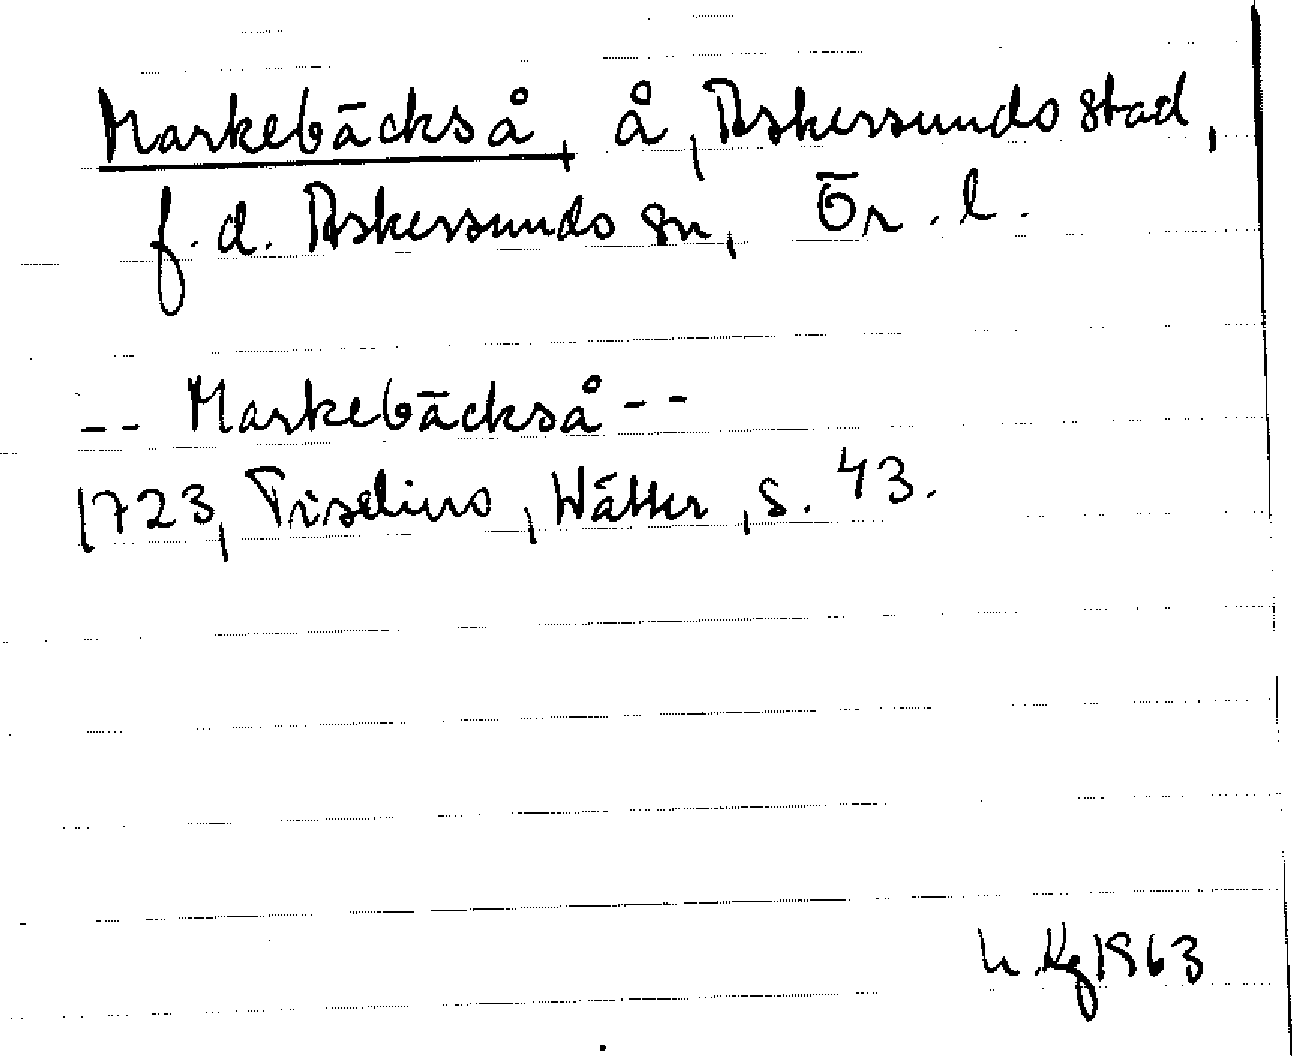 Markebäckså, å, Askersunds stad,
f.d. Askersunds sn, Ör. l.
-- Markebäckså --
1723, Tiselius, Wätter, s. 43.
1963